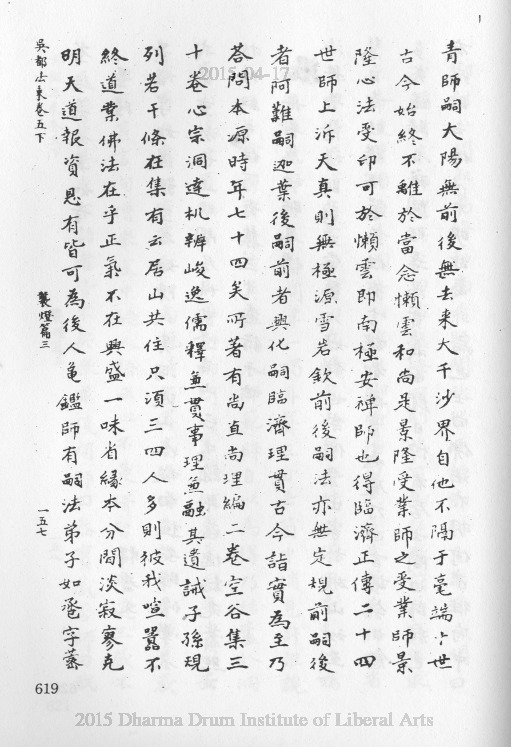 青師嗣大陽無前後無去来大千沙界自他不隔于毫端十世
古今始終不離於當念懶雲和尚是景隆受業師之受業師景
隆心法受印可於懶雲即南極安禅師也得臨濟正傳二十四
世師上泝天真則無極源雪岩欽前後嗣法亦無定規前嗣後
者阿難嗣迦葉後嗣前者興化嗣臨濟理貫古今詣實為至乃
荅問本源時年七十四矣所著有尚直尚理編二卷空谷集三
十卷心宗洞達机辨峻逸儒釋兼貫事理兼融其遺誡子孫現
列若干條在集有云居山共住只須三四人多則彼我喧囂不
終道業佛法在乎正氣不在興盛一味省緣本分閒淡寂寥克
明天道報資恩有皆可為後人龜鑑師有嗣法弟子如宗字
吳都法乗卷五下
襲燈篇三
一五七
619
2015-04-17
2015 Dharma Drum Institute of Liberal Arts